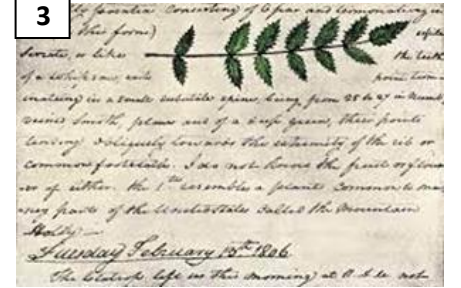 3
parentia Consisting of 6 par and
this form)
Serrate, or like the teeth
of a whipsaw, each point term-
inating in a small subulate spine, being from 25 to 27 in numb
veins smooth, plane and of a deep green, their points
tending obliquely towards the extremity of the rib or
common footstalk. I do not know the fruit or flow
er of either. the 1st resembles a plant common to ma
ny parts of the United States called the Mountain
Holly—
Tuesday February 1806
The Clatsops left us this morning at